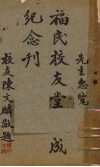 先生惠覽
福民校友堂 成
紀念刊
校友陳文
敬題